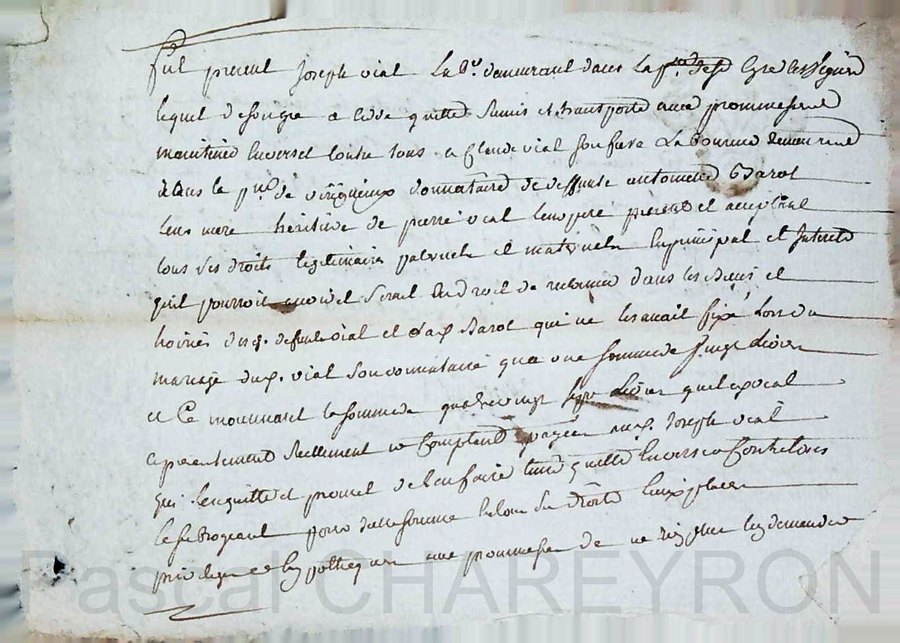 fut present Joseph vial Lab.r demeurant dans La p.sse
lequel de son gre a cede quitté Remis et transporté avec prommesse de
maintenir Envers et Contre tous a Claude vial son frere Laboureur demeurant
dans la p.sse de virigneux donnataire de deffunte antoinette Barot
leur mere héritiere de pierre vial leur pere present et acceptant
tous ses droits legitimaires paternels et maternels En principal et Interets
quil pourroit avoir et Seroit En droit de reclamer dans les Biens et
hoiries desd. defunts vial et Barot qui ne les avait fixé Lors du
mariage dud. vial son donnataire qua une somme de
et Ce moyennant la somme de quatre vingt livres quel vial
a presentement Reellement et Comptant payée aud. Joseph vial
qui len quitte et promet de len faire tenir quitte Envers et Contre tous
le Subrogeant pour de lad. somme En lous ses droits lieux places
privileges et hypotheques avec prommesse de ne Rien plus luy demander
Pascal CHAREYRON